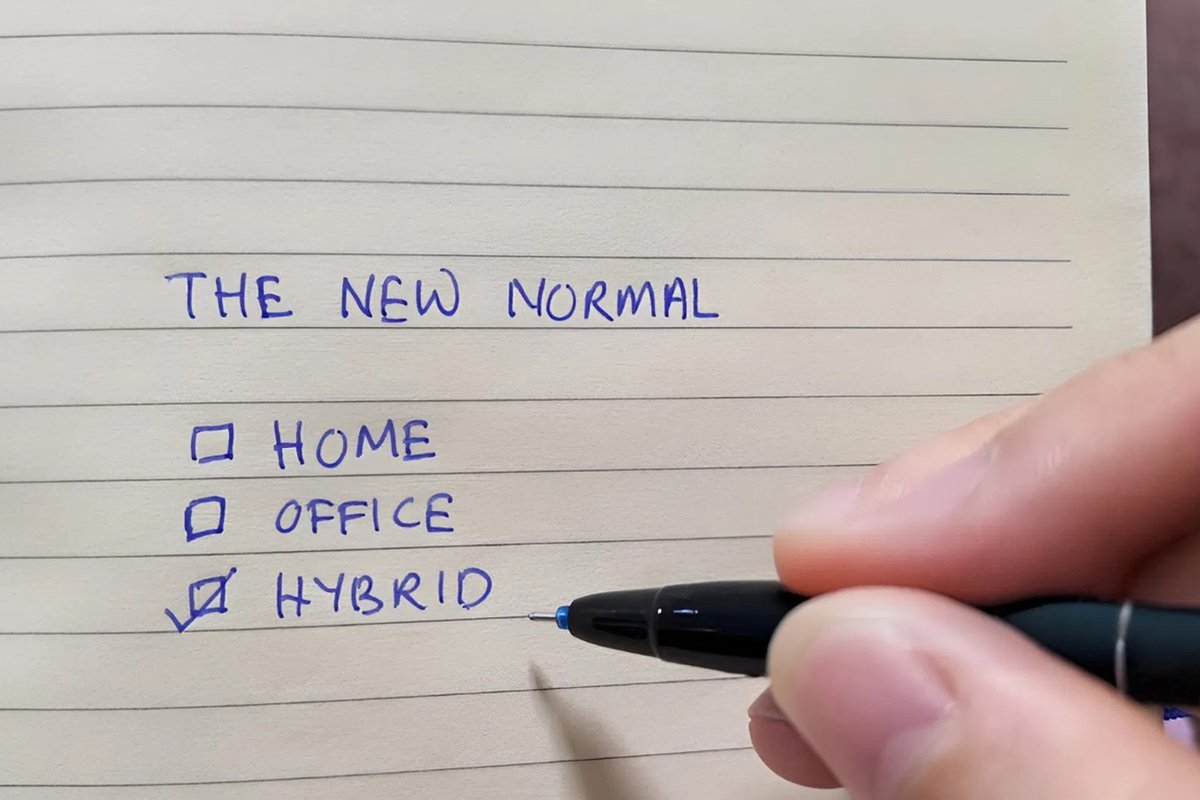 THE NEW NORMAL
HOME
OFFICE
HYBRID